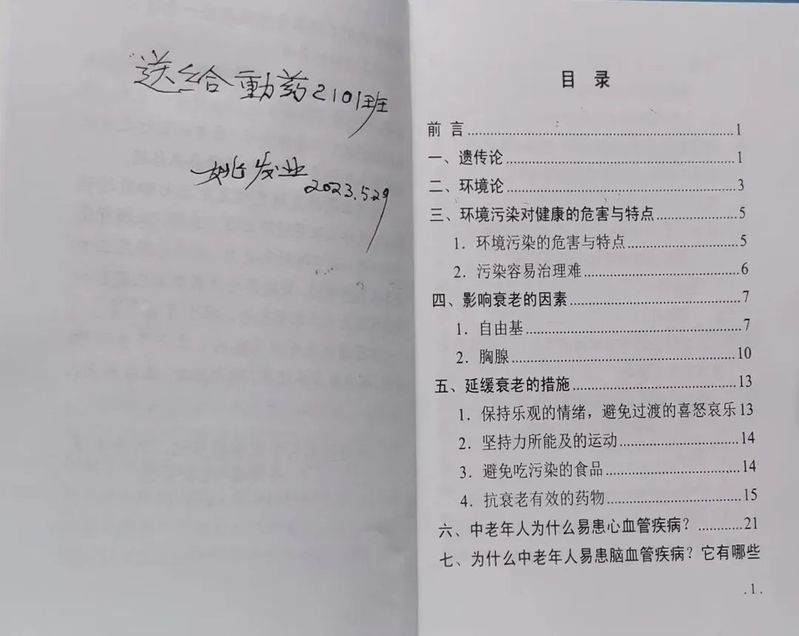 送给動药2101班
姚发业 2023.5.29
目 录
前 言 ........ 1
一、遗传论 ........ 1
二、环境论 ........ 3
三、环境污染对健康的危害与特点 ........ 5
1. 环境污染的危害与特点 ........ 5
2. 污染容易治理难 ........ 6
四、影响衰老的因素 ........ 7
1. 自由基 ........ 7
2. 胸腺 ........ 10
五、延缓衰老的措施 ........ 13
1. 保持乐观的情绪，避免过渡的喜怒哀乐 13
2. 坚持力所能及的运动 ........ 14
3. 避免吃污染的食品 ........ 14
4. 抗衰老有效的药物 ........ 15
六、中老年人为什么易患心血管疾病？ ........ 21
七、为什么中老年人易患脑血管疾病？它有哪些
. 1 .